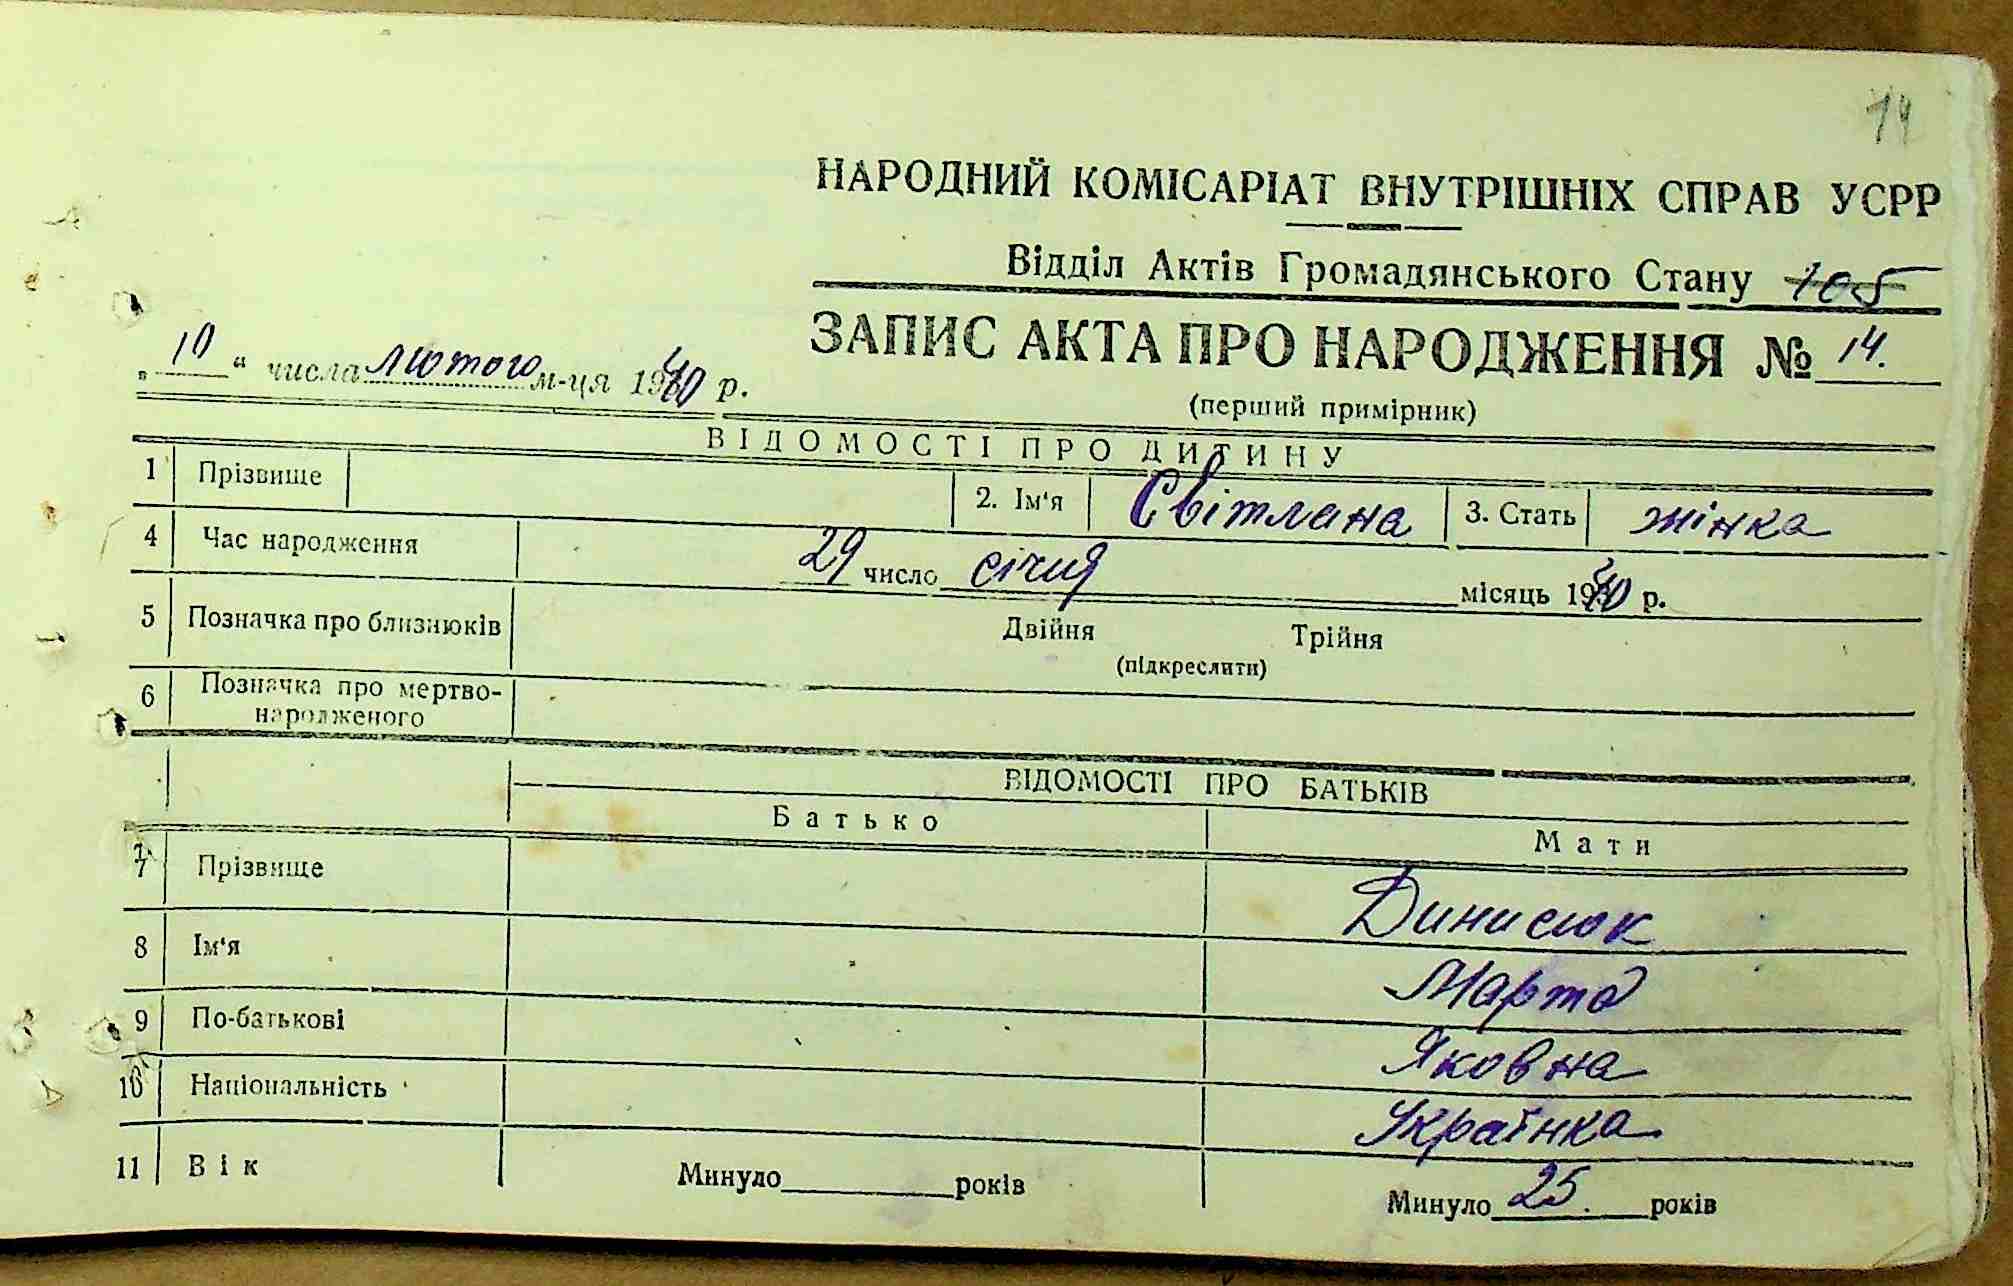 14
НАРОДНИЙ КОМІСАРІАТ ВНУТРІШНІХ СПРАВ УСРР
Відділ Актів Громадянського Стану 105
ЗАПИС АКТА ПРО НАРОДЖЕННЯ № 14.
(перший примірник)
„ 10 “ числа лютого м-ця 1940 р.
ВІДОМОСТІ ПРО ДИТИНУ
1 Прізвище 2. Ім‘я Світлана 3. Стать жінка
4 Час народження 29 число січня місяць 1940 р.
5 Позначка про близнюків Двійня Трійня
(підкреслити)
6 Позначка про мертво-
народженого
ВІДОМОСТІ ПРО БАТЬКІВ
Батько Мати
7 Прізвище Динисюк
8 Ім‘я Марта
9 По-батькові Яковна
10 Національність Українка
11 Вік Минуло років Минуло 25. років